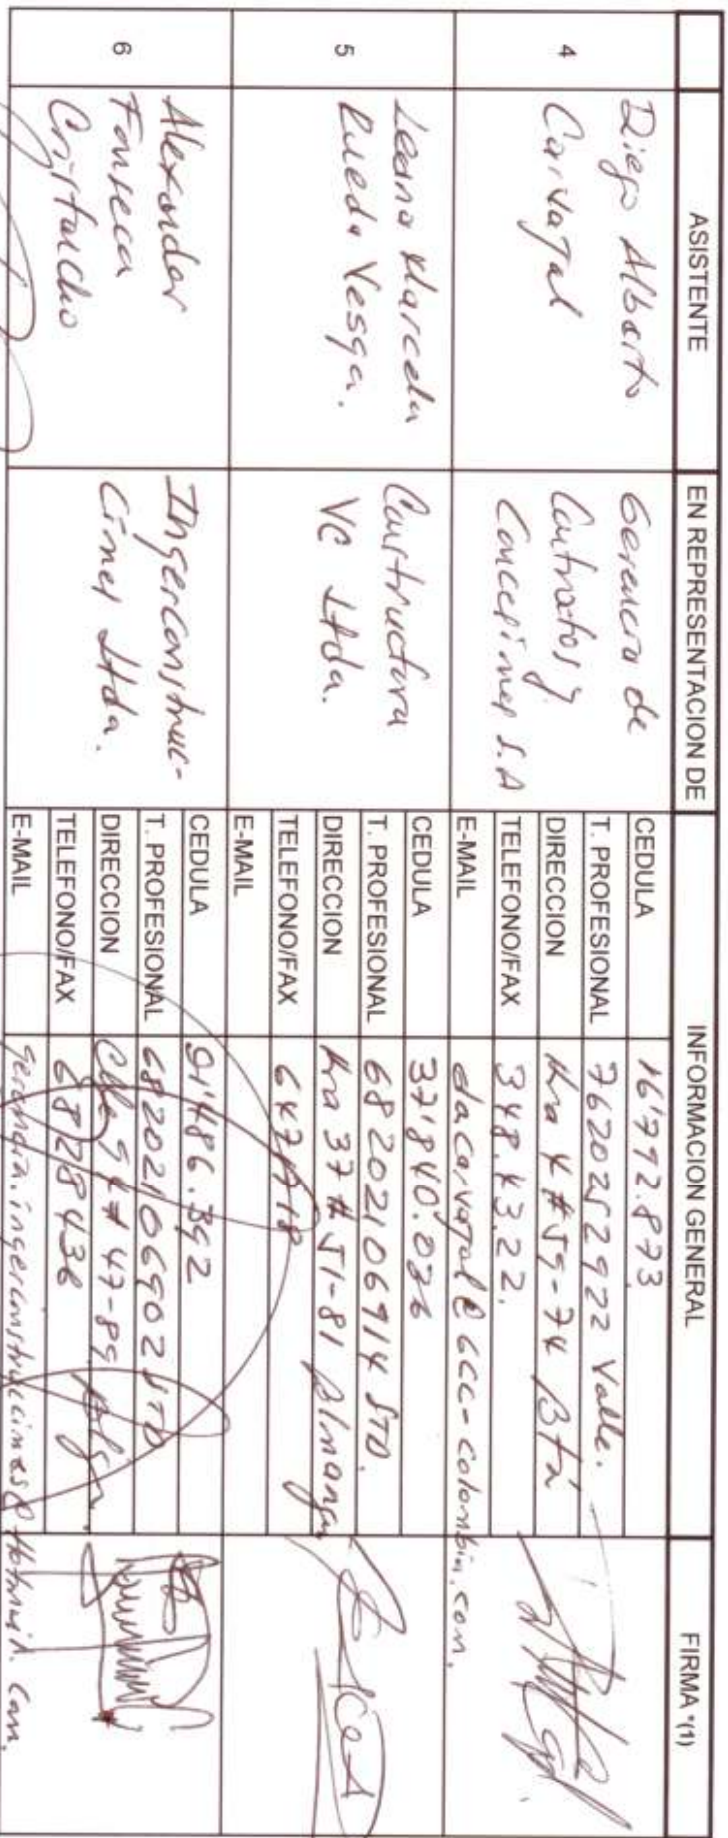 ASISTENTE
EN REPRESENTACION DE
INFORMACION GENERAL
FIRMA *(1)
4
Diego Alberto
Carvajal
Gerencia de
Contratos y
Concesiones S.A
CEDULA
16'792.873
T. PROFESIONAL
7620252922 Valle.
DIRECCION
Kra 4 # 59-74 Btá
TELEFONO/FAX
348.43.22.
E-MAIL
dacarvajal@GCC-colombia.com.
5
Leana Marcela
Rueda Vesga.
Constructora
VC Ltda.
CEDULA
37'840.026
T. PROFESIONAL
68202106914 STD.
DIRECCION
Kra 37 # 51-81 B/manga
TELEFONO/FAX
6471718
E-MAIL
6
Alexander
Fonseca
Cristancho
Ingerconstruc-
ciones Ltda.
CEDULA
91'486.392
T. PROFESIONAL
68202106902 STD
DIRECCION
Clle 54 # 47-89
TELEFONO/FAX
6828436
E-MAIL
gerencia.ingerconstrucciones@Hotmail.com.